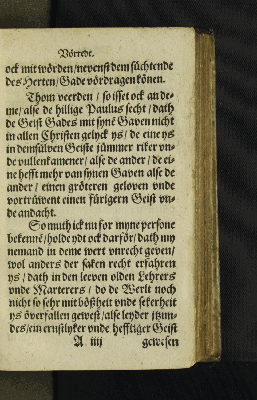 Vörredt.
ock mit wörden / nevenst dem süchtende
des Herten / Gade vördragen könen.
Thom veerden / so isset ock an de-
me / alse de hillige Paulus secht / dath
de Geist Gades mit synē Gaven nicht
in allen Christen gelyck ys / de eine ys
in demsülven Geiste jümmer riker vn-
de vullenkamener / alse de ander / de ei-
ne hefft mehr van synen Gaven alse de
ander / einen gröteren geloven vnde
vortrüwent einen fürigern Geist vn-
de andacht.
So muth ick nu for myne persone
bekennē / holde ydt ock darför / dath my
nemand in deme wert vnrecht geven /
wol anders der saken recht erfahren
ys / dath in den leeven olden Lehrers
vnde Marterers / do de Werlt noch
nicht so sehr mit bößheit vnde sekerheit
ys överfallen gewest / alse leyder itzun-
des / ein ernstlyker vnde hefftiger Geist
A iiij
gewesen